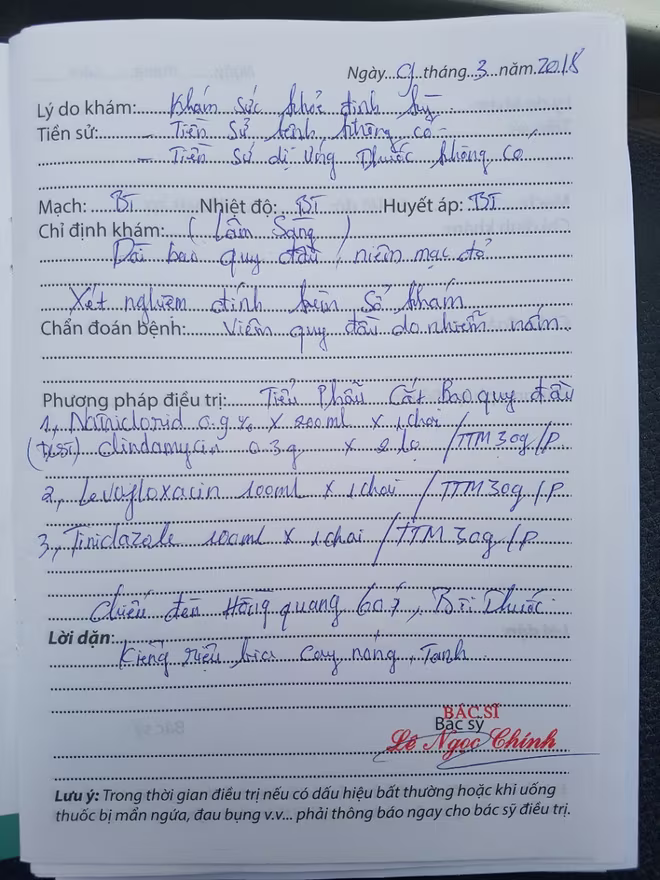 Ngày...9...tháng..3...năm.2018
Lý do khám: Khám sức khỏe định kỳ
Tiền sử: - Tiền sử bệnh không có
- Tiền sử dị ứng thuốc không có
Mạch: BT Nhiệt độ: BT Huyết áp: BT
Chỉ định khám: (Lâm sàng)
Dài bao quy đầu, niêm mạc đỏ
Xét nghiệm đính kèm sổ khám
Chẩn đoán bệnh: Viêm quy đầu do nhiễm nấm
Phương pháp điều trị: Tiểu Phẫu Cắt Bao quy đầu
1, Natriclorid 0.9% x 200ml x 1 chai
(test) Clindamycin 0.3g x 2 lọ /TTM 30g/P.
2, Levofloxacin 100ml x 1 chai /TTM 30g/P.
3, Tinidazole 100ml x 1 chai /TTM 30g/P
Chiếu đèn Hồng quang 60.7, Bôi thuốc.
Lời dặn:
Kiêng rượu bia cay nóng, Tanh
BÁC SĨ
Bác sỹ
Lê Ngọc Chính
Lưu ý: Trong thời gian điều trị nếu có dấu hiệu bất thường hoặc khi uống
thuốc bị mẩn ngứa, đau bụng v.v... phải thông báo ngay cho bác sỹ điều trị.